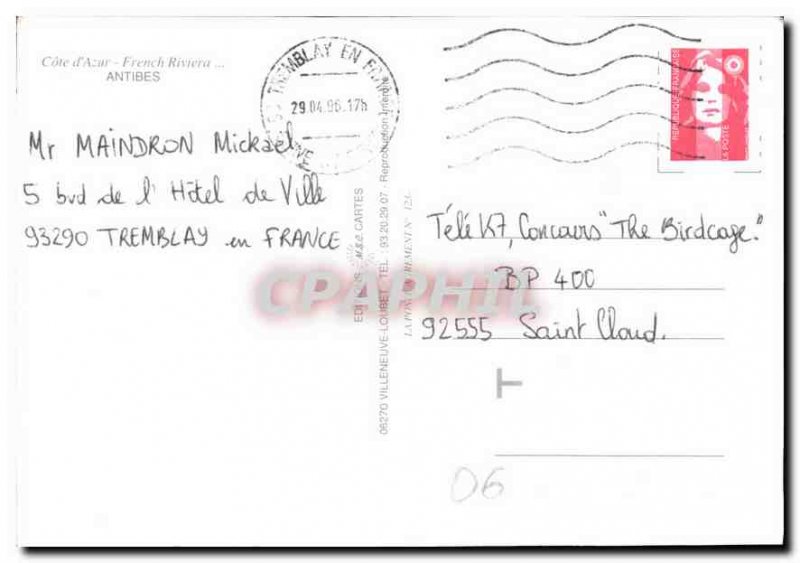 Côte d'Azur - French Riviera ...
ANTIBES
TREMBLAY EN FRANCE
29.04.96.17h
REPUBLIQUE FRANÇAISE
LA POSTE
Mr MAINDRON Mickael
5 bvd de l'Hôtel de Ville
93290 TREMBLAY en FRANCE
Télé K7, Concours "The Birdcage."
BP 400
92555 Saint Cloud.
M.S.C. CARTES
06270 VILLENEUVE-LOUBET - TEL. 93.20.29.07 - Reproduction interdite
CPAPHIL
T
06